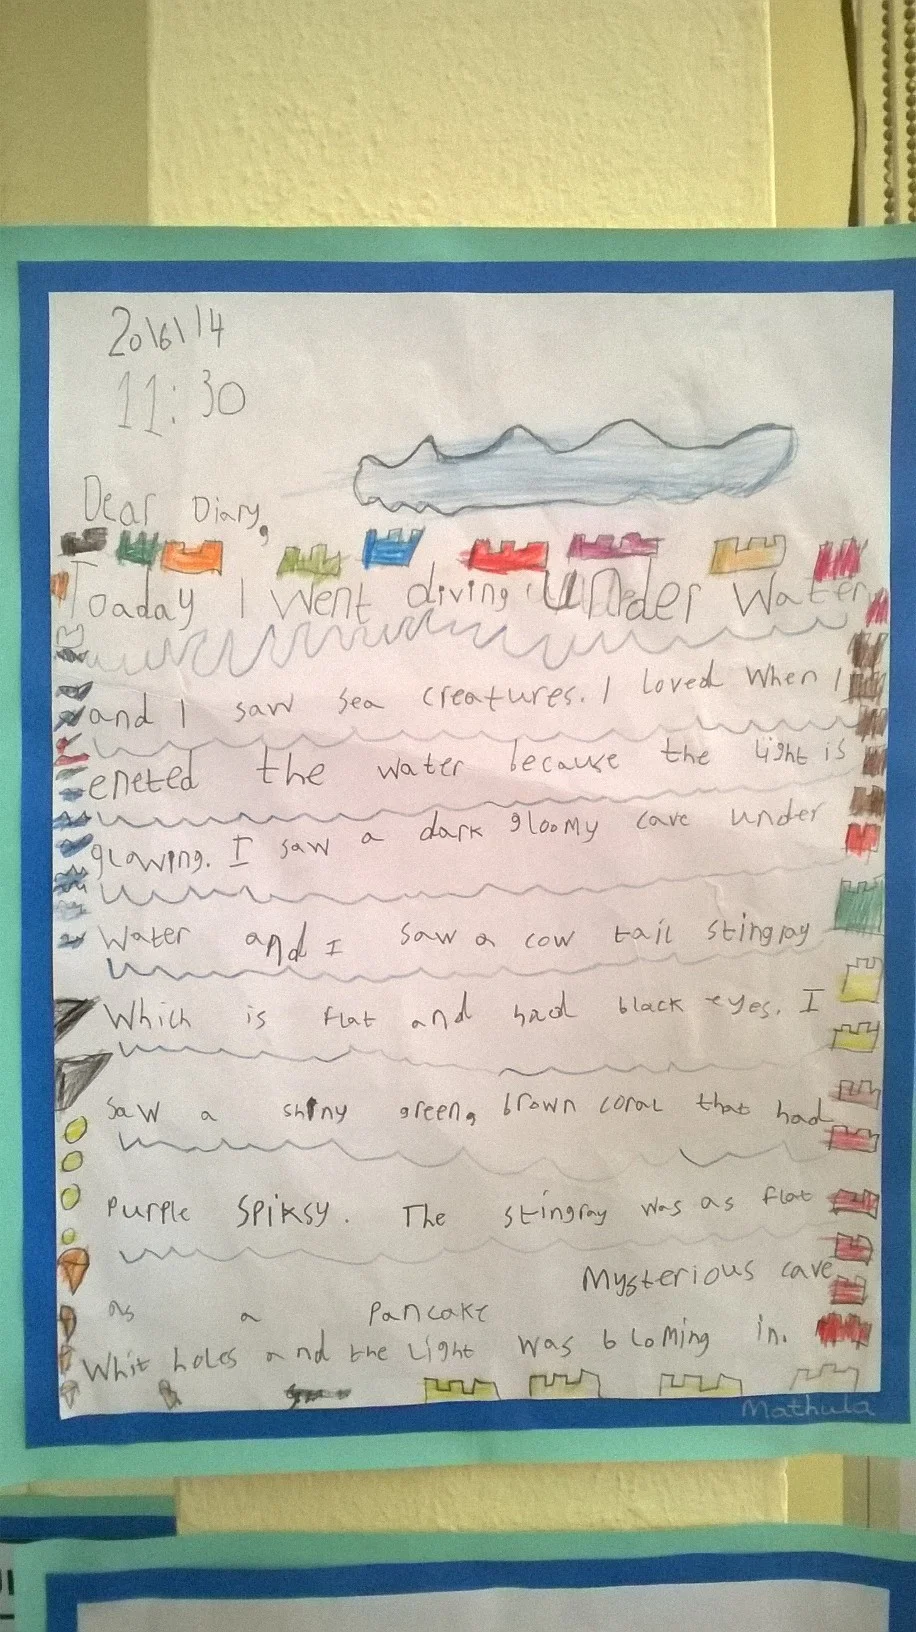 20\6\14
11:30
Dear Diary,
Toaday I went diving under water
and I saw sea creatures. I loved when I
eneted the water because the light is
glowing. I saw a dark gloomy cave under
water and I saw a cow tail stingray
which is flat and had black eyes. I
saw a shiny green, brown coral that had
purple spiksy. The stingray was as flat
as a pancake Mysterious cave
whit holes and the light was bloming in.
Mathula